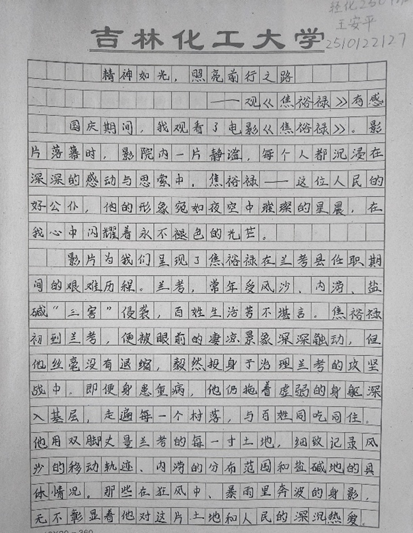 轻化2501
王安平
2510122127
吉林化工大学
精神如光，照亮前行之路
——观《焦裕禄》有感
国庆期间，我观看了电影《焦裕禄》。影
片落幕时，影院内一片静谧，每个人都沉浸在
深深的感动与思索中，焦裕禄——这位人民的
好公仆，他的形象宛如夜空中璀璨的星晨，在
我心中闪耀着永不褪色的光芒。
影片为我们呈现了焦裕禄在兰考县任职期
间的艰难历程。兰考，常年受风沙、内涝、盐
碱“三害”侵袭，百姓生活苦不堪言。焦裕禄
初到兰考，便被眼前的凄凉景象深深触动，但
他丝毫没有退缩，毅然投身于治理兰考的攻坚
战中。即便身患重病，他仍拖着虚弱的身躯深
入基层，走遍每一个村落，与百姓同吃同住。
他用双脚丈量兰考的每一寸土地，细致记录风
沙的移动轨迹、内涝的分布范围和盐碱地的具
体情况。那些在狂风中、暴雨里奔波的身影，
无不彰显着他对这片土地和人民的深沉热爱。